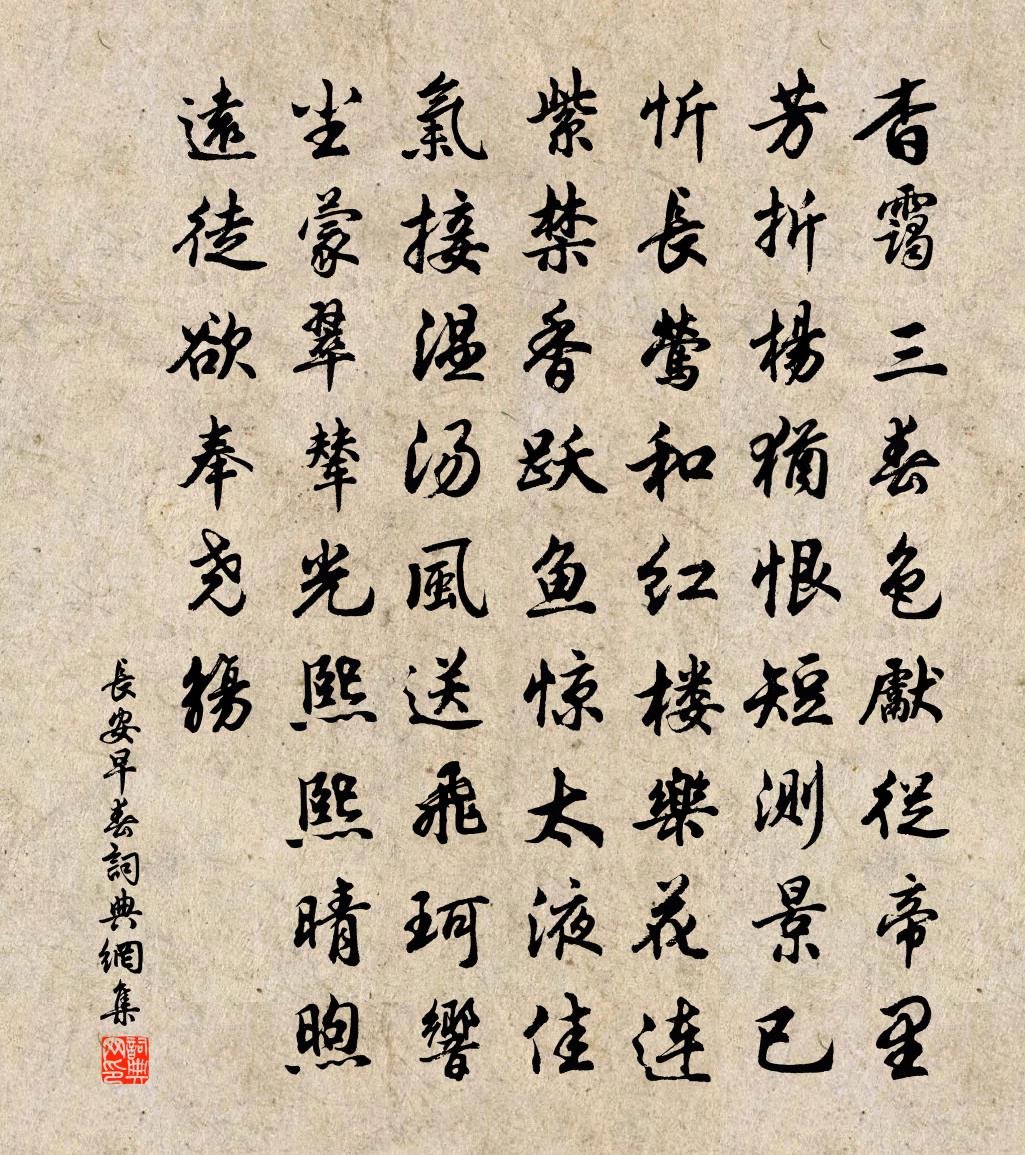 杳靄三春色獻從帝里
芳折楊猶恨短測景已
忻長鶯和红楼樂花连
紫禁香跃鱼惊太液佳
氣接温汤風送飛珂響
尘蒙翠輦光熙熙晴煦
遠徒欲奉尧觴
長安早春詞典網集
詞典网印